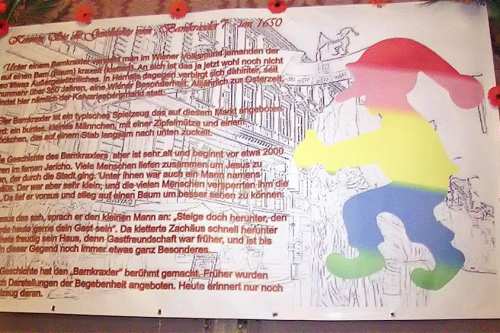 Kennen Sie die Geschichte vom "Bamkraxler"? um 1650
Unter einem Bamkraxler versteht man im Wiener Volksmund jemanden der
auf einen Bam (Baum) kraxelt (klettert). An sich ist das ja jetzt wohl noch nicht
etwas Außergewöhnliches. In Hernals dagegen verbirgt sich dahinter, seit
nunmehr über 350 Jahren, eine Wiener Besonderheit. Alljährlich zur Osterzeit
findet hier nämlich der Kalvarienbergmarkt statt:
Bamkraxler ist ein typisches Spielzeug das auf diesem Markt angeboten
wird: ein buntes, kleines Männchen, mit einer Zipfelmütze und einem
das auf einem Stab langsam nach unten zuckelt.
Geschichte des Bamkraxlers aber ist sehr alt und beginnt vor etwa 2000
im fernen Jericho. Viele Menschen liefen zusammen um Jesus zu
der durch die Stadt ging. Unter ihnen war auch ein Mann namens
Der war aber sehr klein; und die vielen Menschen versperrten ihm die
Da lief er voraus und stieg auf einen Baum um besser sehen zu können.
das sah, sprach er den kleinen Mann an: „Steige doch herunter, denn
heute gerne dein Gast sein". Da kletterte Zachäus schnell herunter
freudig sein Haus, denn Gastfreundschaft war früher, und ist bis
dieser Gegend noch immer etwas ganz Besonderes.
Geschichte hat den „Bamkraxler" berühmt gemacht. Früher wurden
Darstellungen der Begebenheit angeboten. Heute erinnert nur noch
daran.